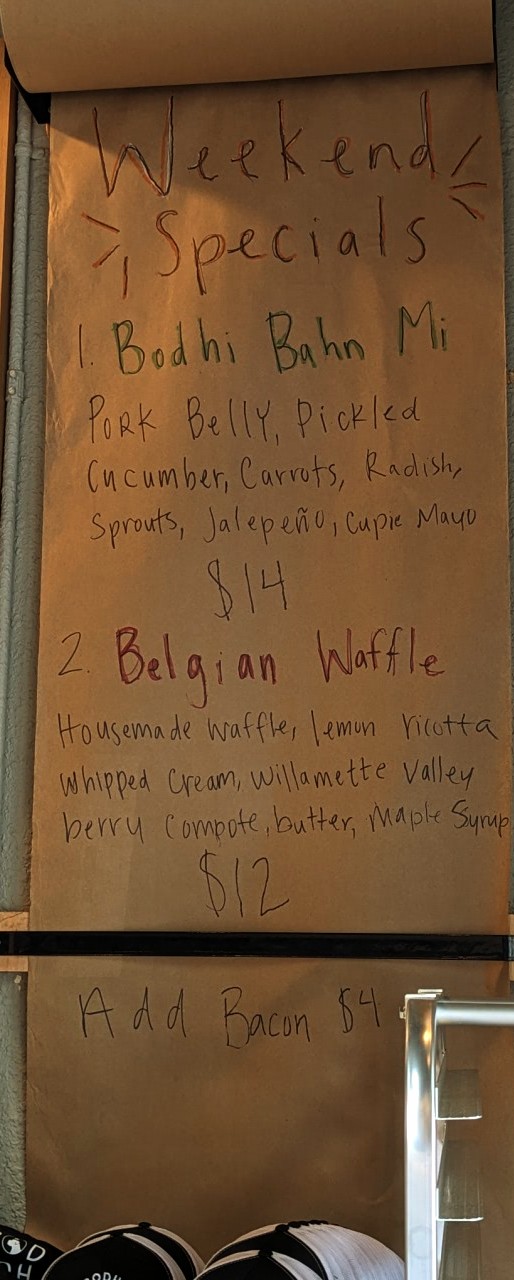 Weekend
Specials
1. Bodhi Bahn Mi
Pork Belly, Pickled
Cucumber, Carrots, Radish,
Sprouts, Jalepeño, Cupie Mayo
$14
2. Belgian Waffle
Housemade Waffle, lemon ricotta
Whipped Cream, Willamette Valley
berry Compote, butter, Maple Syrup
$12
Add Bacon $4